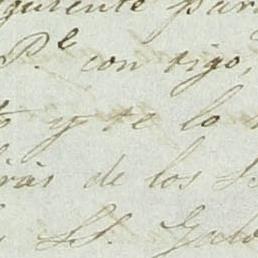 guiente par
P.e con tigo,
y te lo
rás de los S
SS. Gab